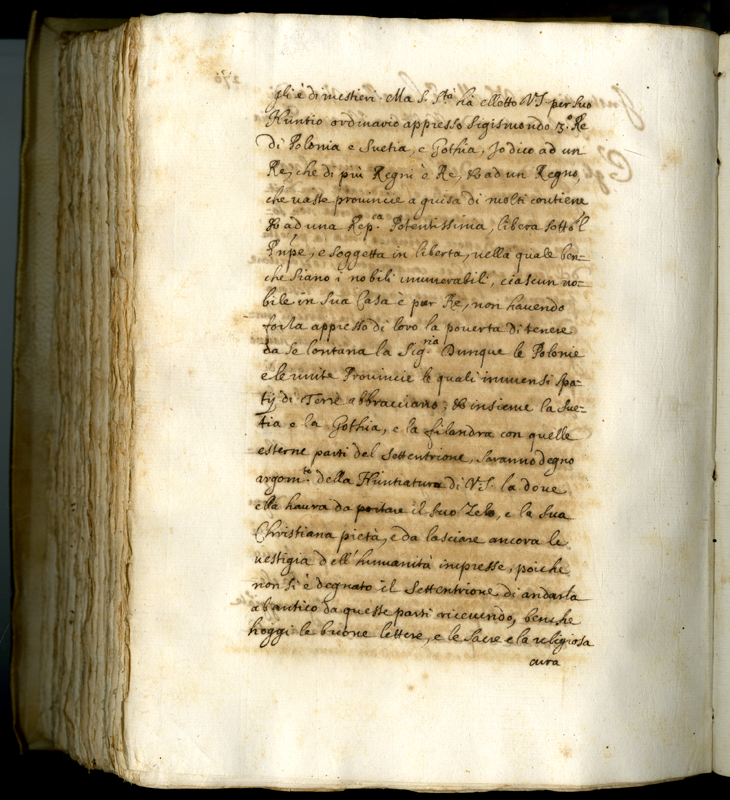 gli è di mestieri. Ma S. S.tà ha eletto V.S. per suo
Nuntio ordinario appresso Sigismondo 3.º Re
di Polonia e Suetia, e Gothia, Io dico ad un
Re, che di più Regni è Re, & ad un Regno,
che uaste prouincie a guisa di molti contiene
& ad una Rep.ca Potentissima, libera sotto 'l
Pnpe, e soggetta in liberta, nella quale ben=
che siano i nobili innumerabili, ciascun no=
bile in sua Casa è pur Re, non hauendo
forza appresso di loro la pouerta di tenere
da se lontana la Sig.ria Dunque le Polonie
e le unite Prouincie le quali immensi spa=
tij di Terre abbracciano; & insieme la Sue=
tia e la Gothia, e la filandra con quelle
esterne parti del Settentrione, saranno degno
argom.to della Nuntiatura di V.S. la doue
ella haura da portare il suo Zelo, e la sua
Christiana pietà, e da lasciare ancora le
uestigia dell' humanità impresse, poiche
non si è degnato il Settentrione di andarla
ab antico da queste parti riceuendo, benche
hoggi le buone lettere, e le sacre e la religiosa
cura